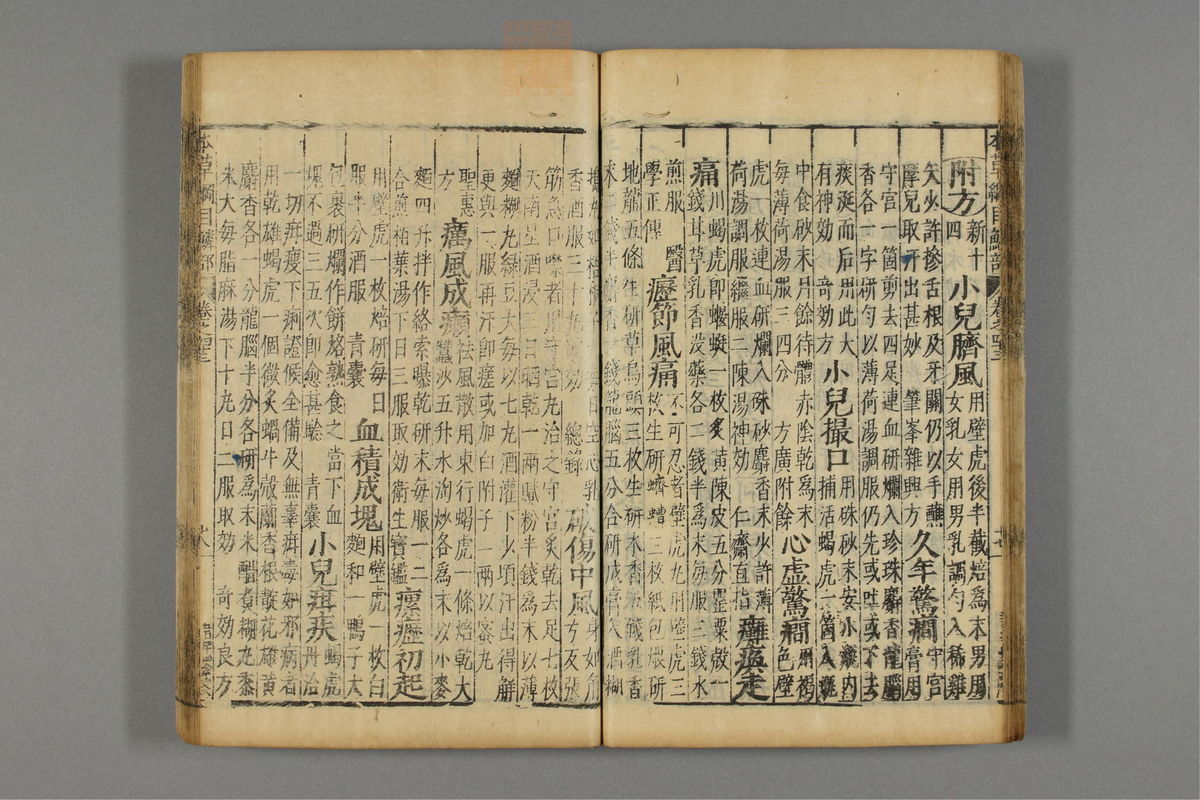 附方新十四小兒臍風用壁虎後半截焙爲末男用
女乳女用男乳調勻入稀雞
矢少許掺舌根及牙關仍以手蘸
摩兒取汗出甚妙 筆峯雜興方久年驚癇守宮膏用
守宮一箇剪去四足連血研爛入珍珠麝香龍腦
香各一字研勻以薄荷湯調服仍先或吐或下去
痰涎而后用此大
有神効 奇効方小兒撮口用硃砂末安小瓶內
捕活蝎虎一箇入瓶
中食砂末月餘待體赤陰乾爲
末每薄荷湯服三四分 方廣附餘心虛驚癇用褐色壁
虎一枚連血研爛入硃砂麝香末少許薄
荷湯調服繼服二陳湯神効 仁齋直指癱瘓走
痛用蝎虎即蝘蜓一枚炙黄陳皮五分罌粟殻一
錢甘草乳香没藥各二錢半爲末每服三錢水
煎服 醫學正傳歷節風痛不可忍者壁虎丸用壁虎三
枚生研蠐螬三枚紙包煨研
地龍五條生研草烏頭三枚生研木香五錢乳香
末二錢半麝香一錢龍腦五分合研成膏入酒糊
空心乳
香酒服三十丸 総錄破傷中風身如角弓反張
筋急口噤者用守宮丸治之守宮炙乾去足七枚
天南星酒浸三日晒乾一兩膩粉半錢爲末以薄
麵糊丸綠豆大每以七丸酒灌下少頃汗出得解
更與一服再汗即瘥或加白附子一兩以蜜丸
聖惠方癘風成癩祛風散用東行蝎虎一條焙乾大
蠶沙五升水淘炒各爲末以小麥
麵四升拌作絡索曝乾研末每服一二
合煎柏葉湯下日三服取効 衛生寶鑑瘰癧初起
用壁虎一枚焙研每日
服半分酒服 青囊血積成塊用壁虎一枚白
麵和一鴨子大
包裹研爛作餅烙熟食之當下血
塊不過三五次即愈甚驗 青囊小兒疳疾蝎虎丹治
一切疳瘦下痢證候全備及無辜疳毒如邪病者
用乾雄蝎虎一個微炙蝸牛殻蘭香根靛花雄黄
麝香各一分龍腦半分各研爲末米醋煮糊丸黍
米大每脂麻湯下十丸日二服取効 奇効良方
本草綱目鱗部 卷之四三
本草綱目鱗部 卷之四三